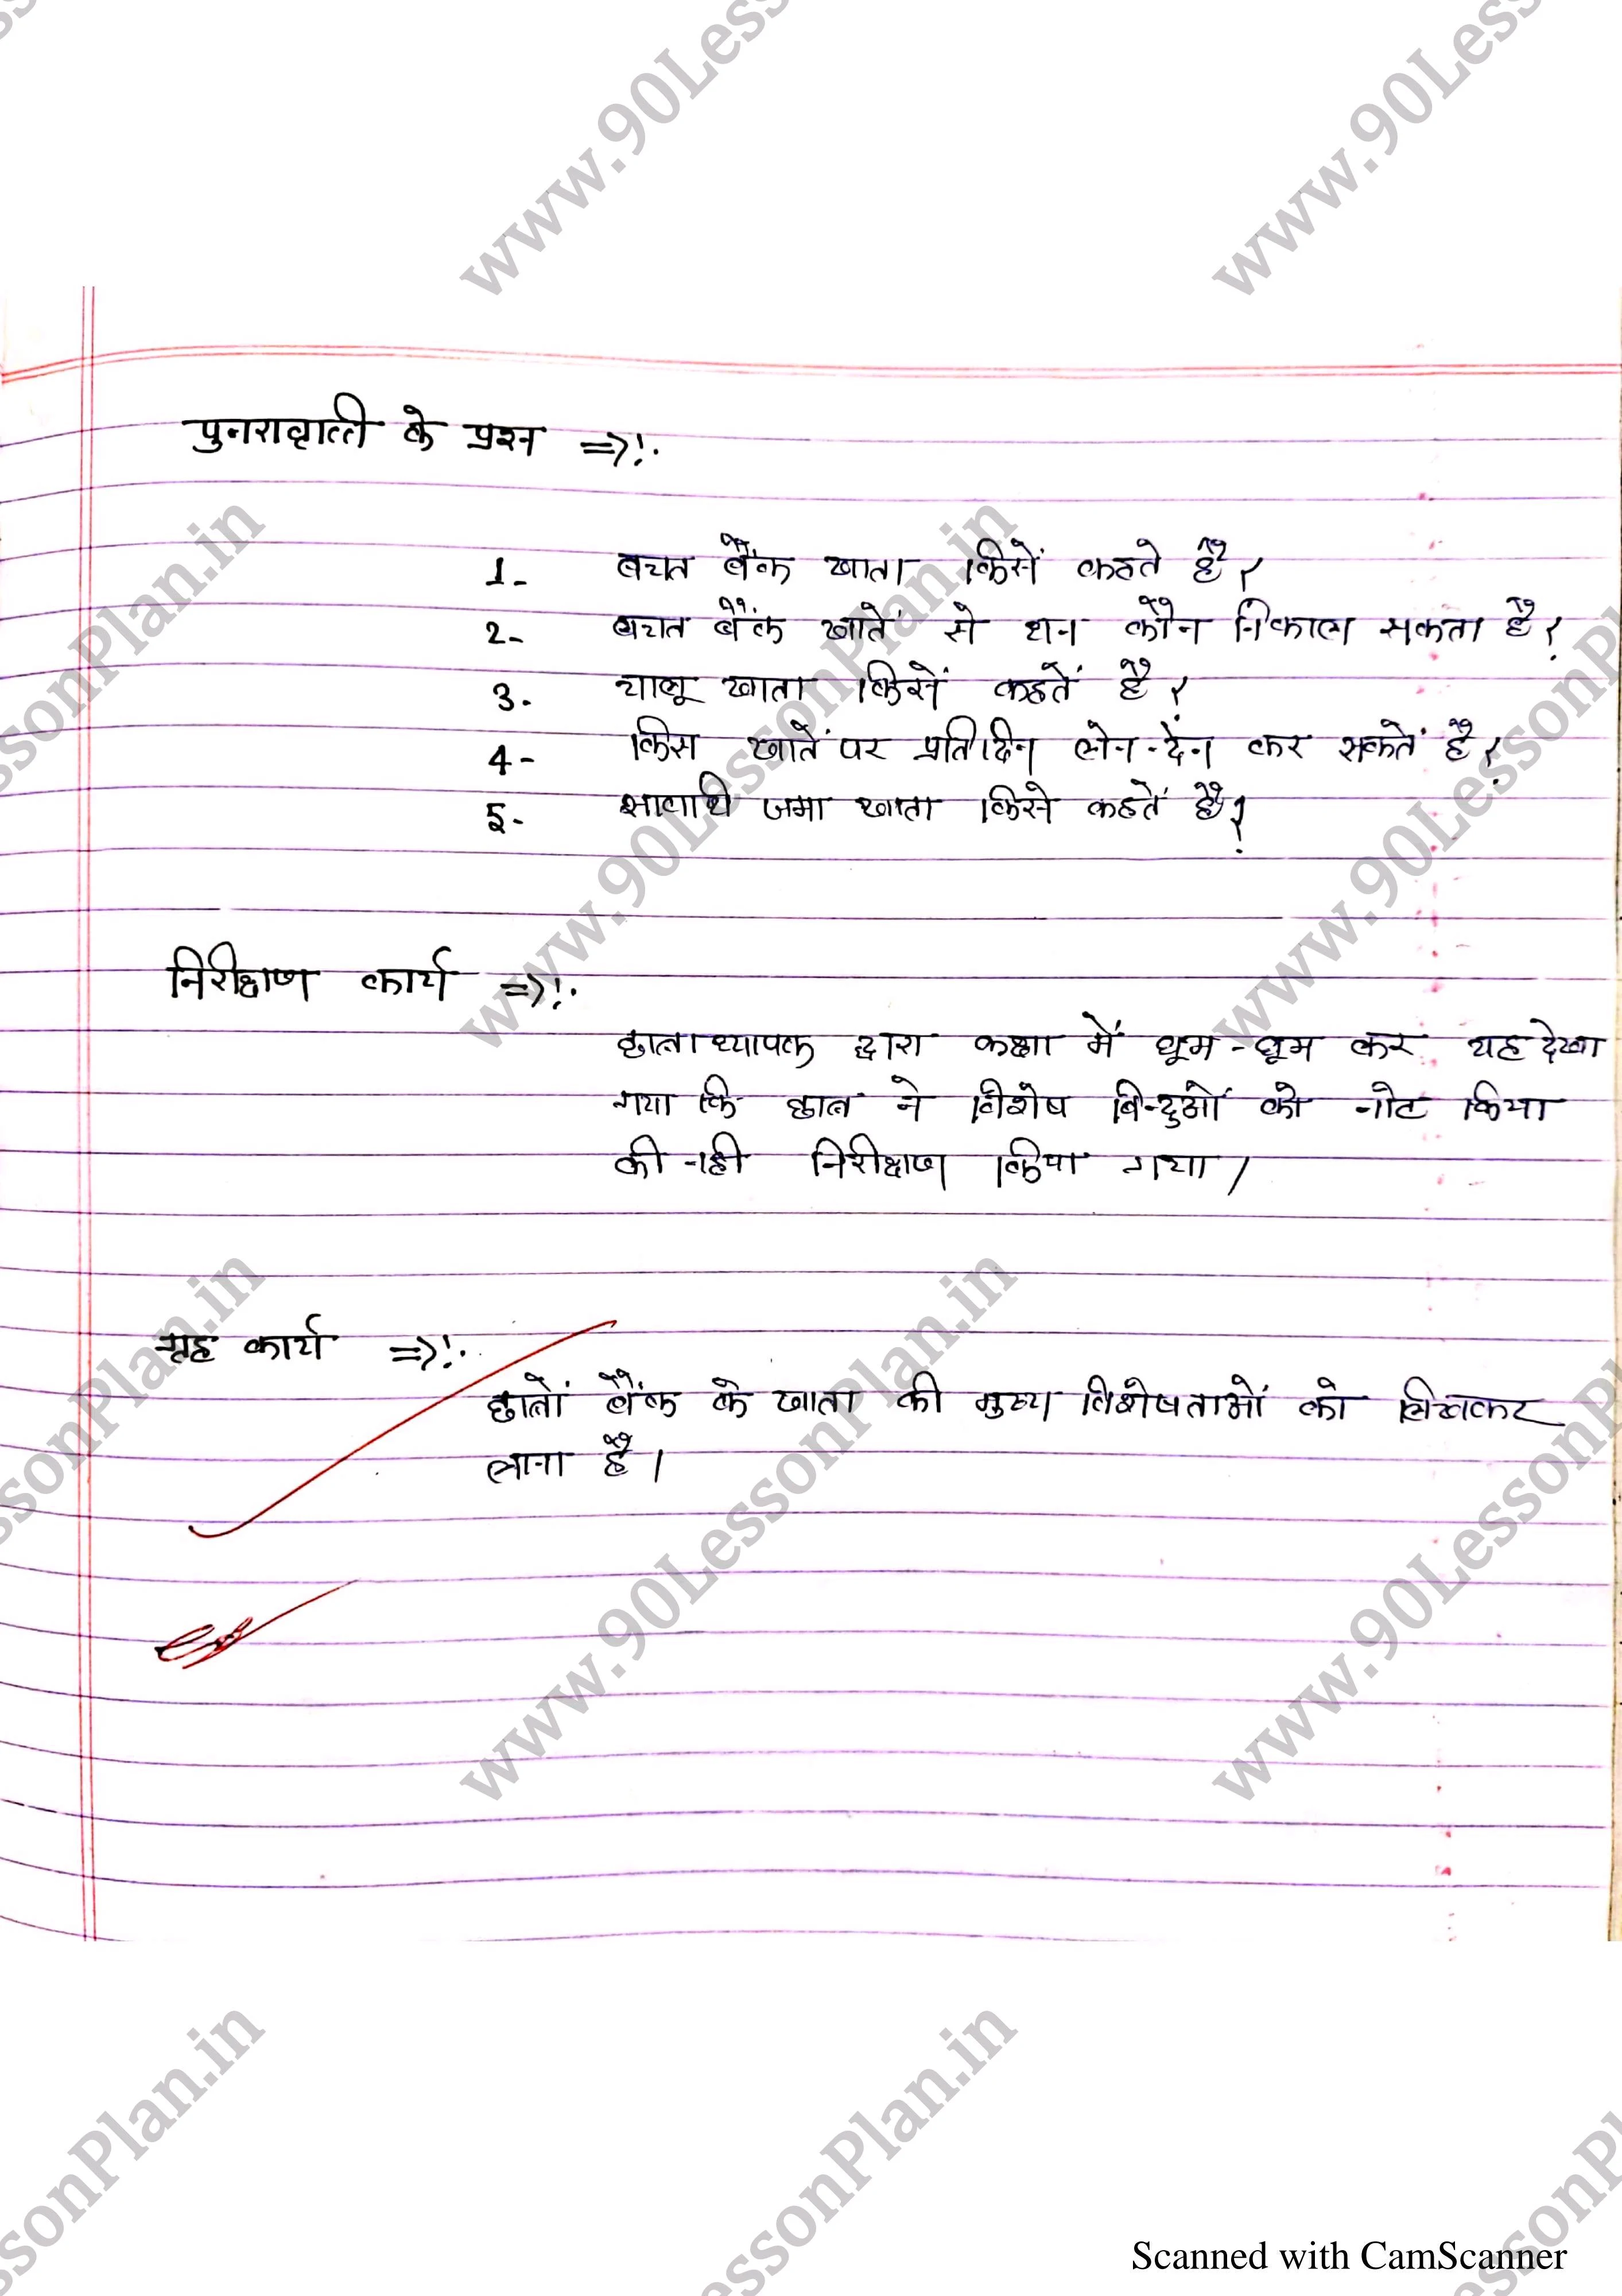 पुनरावृत्ती के प्रश्न =>!.
1- बचत बैंक खाता किसें कहते हैं?
2- बचत बैंक खातें से धन कौन निकाल सकता है?
3. चालू खाता किसें कहतें है?
4- किस खातें पर प्रतिदिन लेन-देंन कर सकतें है?
5- आवाधि जमा खाता किसे कहतें हैं?
निरीक्षण कार्य =>!.
छात्राध्यापक द्वारा कक्षा में घूम-घूम कर यह देखा
गया कि छात्र ने विशेष बिन्दुओं को नोट किया
की नही निरीक्षण किया गया।
गृह कार्य =>!.
छात्रों बैंक के खाता की मुख्य विशेषताओं को लिखकर
लाना है।
www.90LessonPlan.in
Scanned with CamScanner